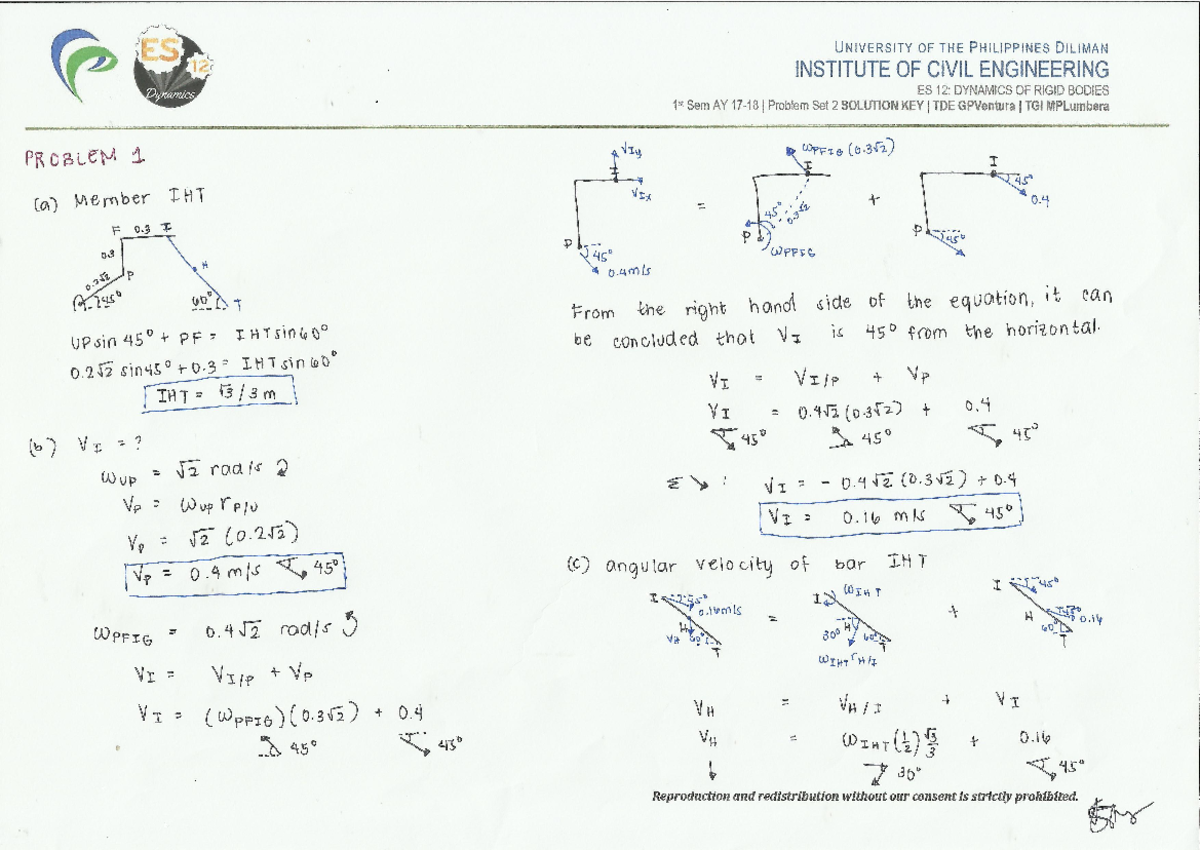 ES 12
Dynamics
UNIVERSITY OF THE PHILIPPINES DILIMAN
INSTITUTE OF CIVIL ENGINEERING
ES 12: DYNAMICS OF RIGID BODIES
1st Sem AY 17-18 | Problem Set 2 SOLUTION KEY | TDE GPVentura | TGI MPLumbera
PROBLEM 1
(a) Member IHT
F 0.3 I
0.3
H
0.2√2 P
45° 60° T
UP sin 45° + PF = IHT sin 60°
0.2√2 sin 45° + 0.3 = IHT sin 60°
IHT = √3/3 m
(b) VI = ?
ωUP = √2 rad/s
VP = ωUP rP/U
VP = √2 (0.2√2)
VP = 0.4 m/s 45°
ωPFIG = 0.4√2 rad/s
VI = VI/P + VP
VI = (ωPFIG)(0.3√2) + 0.4
45° 45°
VIy
I
VIx
P
45°
0.4 m/s
=
ωPFIG (0.3√2)
I
45°
0.3√2
P
ωPFIG
+
I
45°
0.4
P
45°
From the right hand side of the equation, it can
be concluded that VI is 45° from the horizontal.
VI = VI/P + VP
VI = 0.4√2 (0.3√2) + 0.4
45° 45° 45°
Σ ↘ : VI = - 0.4√2 (0.3√2) + 0.4
VI = 0.16 m/s 45°
(c) angular velocity of bar IHT
I 45°
0.16 m/s
H
VH 60°
T
=
I ωIHT
H
30° 60°
T
ωIHT rH/I
+
I 45°
H 45° 0.16
60°
T
VH = VH/I + VI
VH = ωIHT (1/2) √3/3 + 0.16
↓ 30° 45°
Reproduction and redistribution without our consent is strictly prohibited.